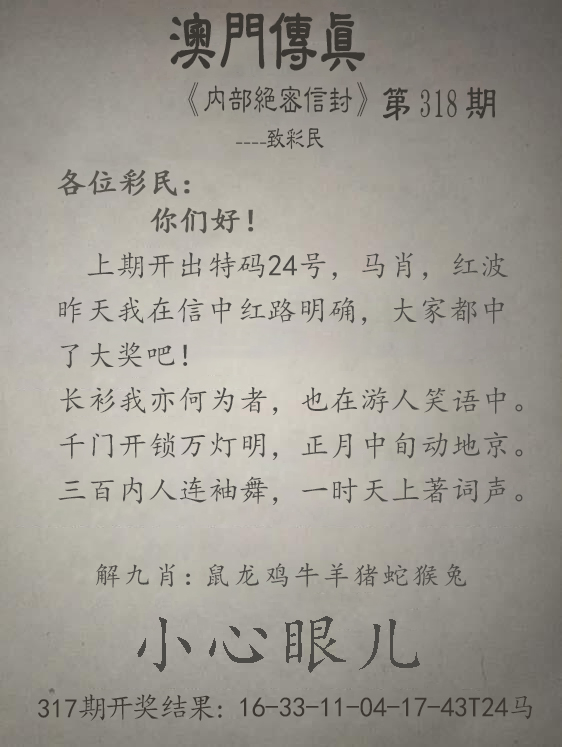 澳門傳眞
《内部絕密信封》第318期
----致彩民
各位彩民：
你们好！
上期开出特码24号，马肖，红波
昨天我在信中红路明确，大家都中
了大奖吧！
长衫我亦何为者，也在游人笑语中。
千门开锁万灯明，正月中旬动地京。
三百内人连袖舞，一时天上著词声。
解九肖：鼠龙鸡牛羊猪蛇猴兔
小心眼儿
317期开奖结果：16-33-11-04-17-43T24马